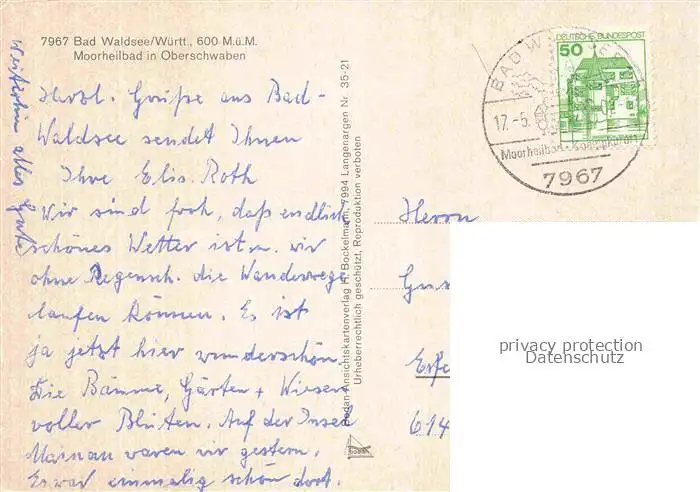 7967 Bad Waldsee/Württ., 600 M.ü.M.
Moorheilbad in Oberschwaben
Herzl. Grüße aus Bad-
Waldsee sendet Ihnen
Ihre Elis. Roth
Wir sind froh, daß endlich
schönes Wetter ist u. wir
ohne Regensch. die Wanderwege
laufen können. Es ist
ja jetzt hier wunderschön.
Die Bäume, Gärten + Wiesen
voller Blüten. Auf der Insel
Mainau waren wir gestern.
Es war einmalig schön dort.
Weiterhin alles Gute
Bodan-Ansichtskartenverlag H. Bockelmann, 7994 Langenargen Nr. 35-21
Urheberrechtlich geschützt, Reproduktion verboten
DEUTSCHE BUNDESPOST
50
BAD WALDSEE
17.-5.
Moorheilbad
7967
Herrn
Gus
614
privacy protection
Datenschutz